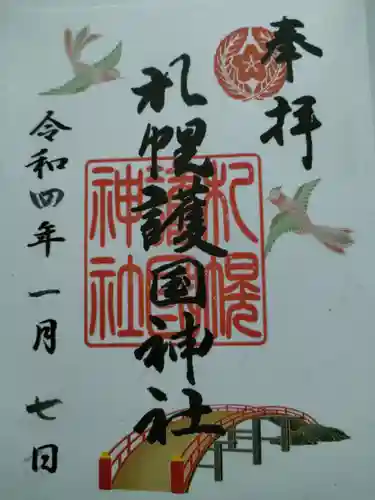 奉拝
札幌護国神社
札幌
護国
神社
令和四年一月七日